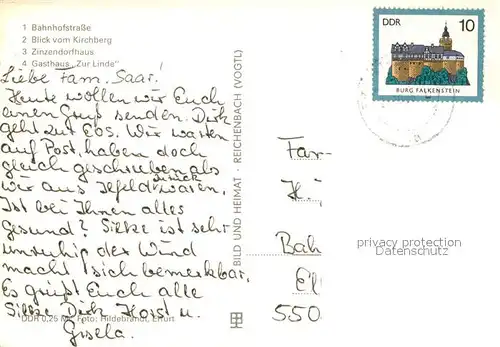 1 Bahnhofstraße
2 Blick vom Kirchberg
3 Zinzendorfhaus
4 Gasthaus „Zur Linde"
Liebe Fam. Saar!
Heute wollen wir Euch
einen Gruß senden. Dirk
geht zur EOS. Wir warten
auf Post, haben doch
gleich geschrieben als
wir aus Ilfeld zurück waren.
Ist bei Ihnen alles
gesund? Silke ist sehr
unruhig der Wind
macht sich bemerkbar.
Es grüßt Euch alle
Silke Dirk Horst u.
Gisela.
DDR 0,25 M Foto: Hildebrandt, Erfurt
BILD UND HEIMAT · REICHENBACH (VOGTL)
DDR 10
BURG FALKENSTEIN
Fam
H
Bah
El
550
privacy protection
Datenschutz